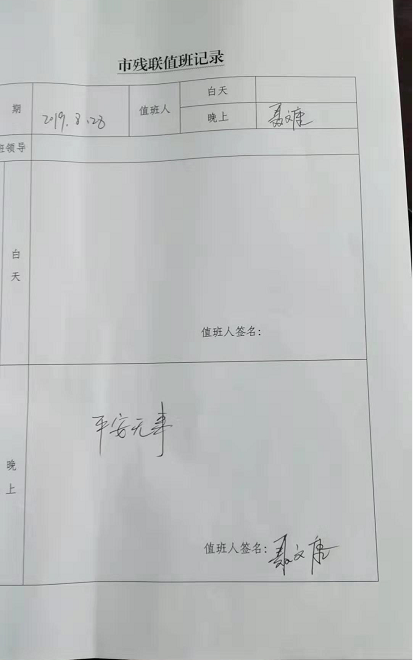 市残联值班记录
期 2019.8.28 值班人 白天
晚上 聂文康
班领导
白天
值班人签名：
晚上
平安无事
值班人签名：聂文康